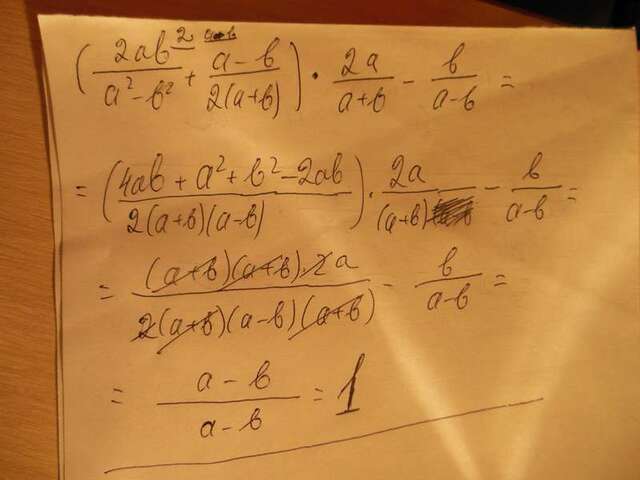 (2ab/(a² - b²) + (a - b)/(2(a + b))) · 2a/(a + b) - b/(a - b) =
= ((4ab + a² + b² - 2ab)/(2(a + b)(a - b))) · 2a/(a + b) - b/(a - b) =
= ((a + b)(a + b) · 2a)/(2(a + b)(a - b)(a + b)) - b/(a - b) =
= (a - b)/(a - b) = 1